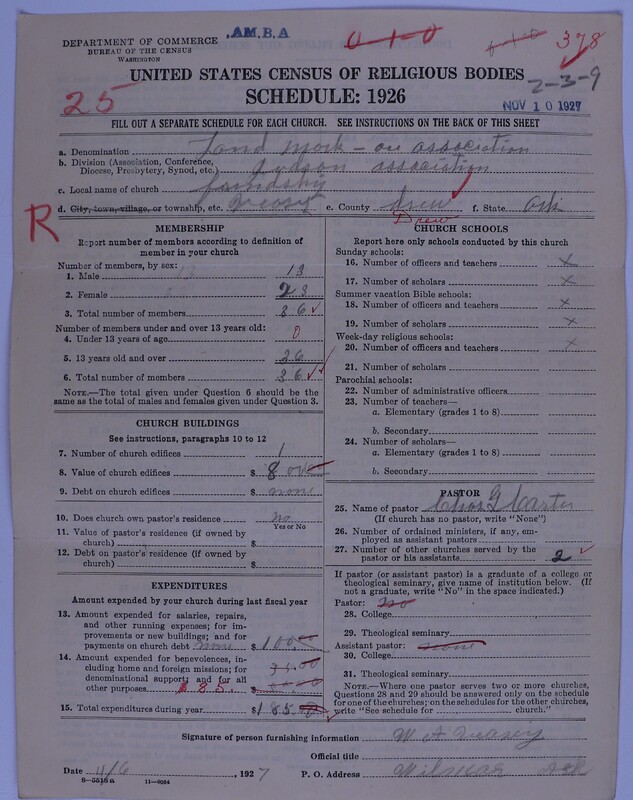 .AM.B.A
DEPARTMENT OF COMMERCE
BUREAU OF THE CENSUS
WASHINGTON
0-1-0
378
UNITED STATES CENSUS OF RELIGIOUS BODIES
2-3-9
25
SCHEDULE: 1926
NOV 10 1927
FILL OUT A SEPARATE SCHEDULE FOR EACH CHURCH. SEE INSTRUCTIONS ON THE BACK OF THIS SHEET
a. Denomination Land mark - association
b. Division (Association, Conference,
Diocese, Presbytery, Synod, etc.) Judson association
c. Local name of church
d. City, town, village, or township, etc. Veasey e. County Drew f. State Ark
Drew
R
MEMBERSHIP
Report number of members according to definition of
member in your church
Number of members, by sex:
1. Male 13
2. Female 23
3. Total number of members 36
Number of members under and over 13 years old:
4. Under 13 years of age 0
5. 13 years old and over 36
6. Total number of members 36
NOTE.—The total given under Question 6 should be
same as the total of males and females given under Question 3.
CHURCH BUILDINGS
See instructions, paragraphs 10 to 12
7. Number of church edifices 1
8. Value of church edifices $ 800
9. Debt on church edifices $ none
10. Does church own pastor's residence No
Yes or No
11. Value of pastor's residence (if owned by
church) $
12. Debt on pastor's residence (if owned by
church) $
EXPENDITURES
Amount expended by your church during last fiscal year
13. Amount expended for salaries, repairs,
and other running expenses; for im-
provements or new buildings; and for
payments on church debt none $ 100.00
14. Amount expended for benevolences, in-
cluding home and foreign missions; for
denominational support; and for all
other purposes $ 85. $
15. Total expenditures during year $ 185
CHURCH SCHOOLS
Report here only schools conducted by this church
Sunday schools:
16. Number of officers and teachers x
17. Number of scholars x
Summer vacation Bible schools:
18. Number of officers and teachers x
19. Number of scholars x
Week-day religious schools:
20. Number of officers and teachers x
21. Number of scholars
Parochial schools:
22. Number of administrative officers
23. Number of teachers—
a. Elementary (grades 1 to 8)
b. Secondary
24. Number of scholars—
a. Elementary (grades 1 to 8)
b. Secondary
PASTOR
25. Name of pastor Chas G Carter
(If church has no pastor, write "None")
26. Number of ordained ministers, if any, em-
ployed as assistant pastors
27. Number of other churches served by the
pastor or his assistants 2
If pastor (or assistant pastor) is a graduate of a college or
theological seminary, give name of institution below. (If
not a graduate, write "No" in the space indicated.)
Pastor: No
28. College
29. Theological seminary
Assistant pastor: None
30. College
31. Theological seminary
NOTE.—Where one pastor serves two or more churches,
Questions 28 and 29 should be answered only on the schedule
for one of the churches; on the schedules for the other churches,
write "See schedule for church."
Signature of person furnishing information W A Veasey
Official title
Date 11/6, 1927 P. O. Address Wilmar Ark
8—5518a 11—9034